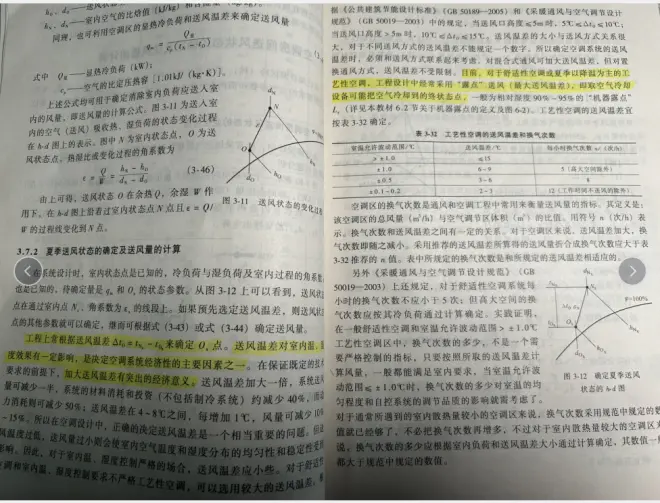 h₀、d₀——送风状态
hₙ、dₙ——室内空气的比焓值（kJ/kg）和
同理，也可利用空调区的显热冷负荷和送风温差来确定送风量
qₘ = Qₓ / cₚ(tₙ − t₀)
式中 Qₓ——显热冷负荷（kW）；
cₚ——空气的比定压热容［1.01kJ/（kg·K）］。
上述公式均可用于确定消除室内负荷应送入室
内的风量，即送风量的计算公式。图3-11为送入室
内的空气（送风）吸收热、湿负荷的状态变化过程
在h-d图上的表示。图中N为室内状态点，O为送
风状态点。热湿比或变化过程的角系数为
ε = Q/W = (hₙ − h₀)/(dₙ − d₀) (3-46)
由上可得，送风状态O在余热Q、余湿W作
用下，在h-d图上沿着过室内状态点N点且ε = Q/
W的过程线变化到N点。
图3-11 送风状态的变化过
3.7.2 夏季送风状态的确定及送风量的计算
在系统设计时，室内状态点是已知的，冷负荷与湿负荷及室内过程的角系数
也是已知的，待确定量是qₘ和O，的状态参数。从图3-12上可以看到，送风状
点在通过室内点N，、角系数为ε，的线段上。如果预先选定送风温差，则送风状
点的其他参数就可以确定，继而可根据式（3-43）或式（3-44）确定送风量。
工程上常根据送风温差Δt₀ = tₙ − t₀来确定O，点。送风温差对室内温、湿
度效果有一定影响，是决定空调系统经济性的主要因素之一。在保证既定的技术
要求的前提下，加大送风温差有突出的经济意义。送风温差加大一倍，系统送风
量可减少一半，系统的材料消耗和投资（不包括制冷系统）约减少40%，而动
力消耗则可减少50%；送风温差在4~8℃之间，每增加1℃，风量可减少10%
~15%。所以在空调设计中，正确的决定送风温差是一个相当重要的问题。但送
风温度过低，送风量过小则会使室内空气温度和湿度分布的均匀性和稳定性受到
影响。因此，对于室内温、湿度控制严格的场合，送风温差应小些。对于舒适性
空调和室内温、湿度控制要求不严格工艺性空调，可以选用较大的送风温差。根
据《公共建筑节能设计标准》（GB 50189—2005）和《采暖通风与空气调节设计
规范》（GB 50019—2003）中的规定，当送风口高度≤5m时，5℃≤Δt₀≤10℃；
当送风口高度＞5m时，10℃≤Δt₀≤15℃。送风温差的大小与送风方式关系很
大，对于不同送风方式的送风温差不能规定一个数字。所以确定空调系统的送风
温差时，必须和送风方式联系起来考虑。对混合式通风可加大送风温差，但对置
换通风方式，送风温差不受限制。目前，对于舒适性空调或夏季以降温为主的工
艺性空调，工程设计中经常采用“露点”送风（最大送风温差），即取空气冷却
设备可能把空气冷却到的终状态点，一般为相对湿度90%~95%的“机器露点”
L（详见本教材6.2节关于机器露点的定义及图6-2）。工艺性空调的送风温差宜
按表3-32确定。
表3-32 工艺性空调的送风温差和换气次数
室温允许波动范围/℃ 送风温差/℃ 每小时换气次数n/（次/h）
＞±1.0 ≤15
±1.0 6~9 5（高大空间除外）
±0.5 3~6 8
±0.1~0.2 2~3 12（工作时间不送风的除外）
空调区的换气次数是通风和空调工程中常用来衡量送风量的指标。其定义是：
该空调区的总风量（m³/h）与空气调节区体积（m³）的比值，用符号n（次/h）表
示。换气次数和送风温差之间有一定的关系。对于空调区来说，送风温差加大，换
气次数即随之减小。采用推荐的送风温差所算得的送风量折合成换气次数应大于表
3-32推荐的n值。表中所规定的换气次数是和所规定的送风温差相适应的。
另外《采暖通风与空气调节设计规范》（GB
50019—2003）上还规定，对于舒适性空调系统每
小时的换气次数不应小于5次；但高大空间的换
气次数应按其冷负荷通过计算确定。实践证明，
在一般舒适性空调和室温允许波动范围＞±1.0℃
工艺性空调区中，换气次数的多少，不是一个需
要严格控制的指标，只要按照所取的送风温差计
算风量，一般都能满足室内要求，当室温允许波
动范围≤±1.0℃时，换气次数的多少对室温的均
匀程度和自控系统的调节品质的影响就需考虑了。
φ=100%
图3-12 确定夏季送风
状态的h-d图
对于通常所遇到的室内散热量较小的空调区来说，换气次数采用规范中规定的数
值就已经够了，不必把换气次数再增多，不过对于室内散热量较大的空调区来
说，换气次数的多少应根据室内负荷和送风温差大小通过计算确定，其数值一般
都大于规范中规定的数值。